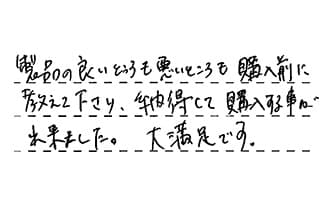 製品の良いところも悪いところも購入前に
教えて下さり、納得して購入する事が
出来ました。 大満足です。